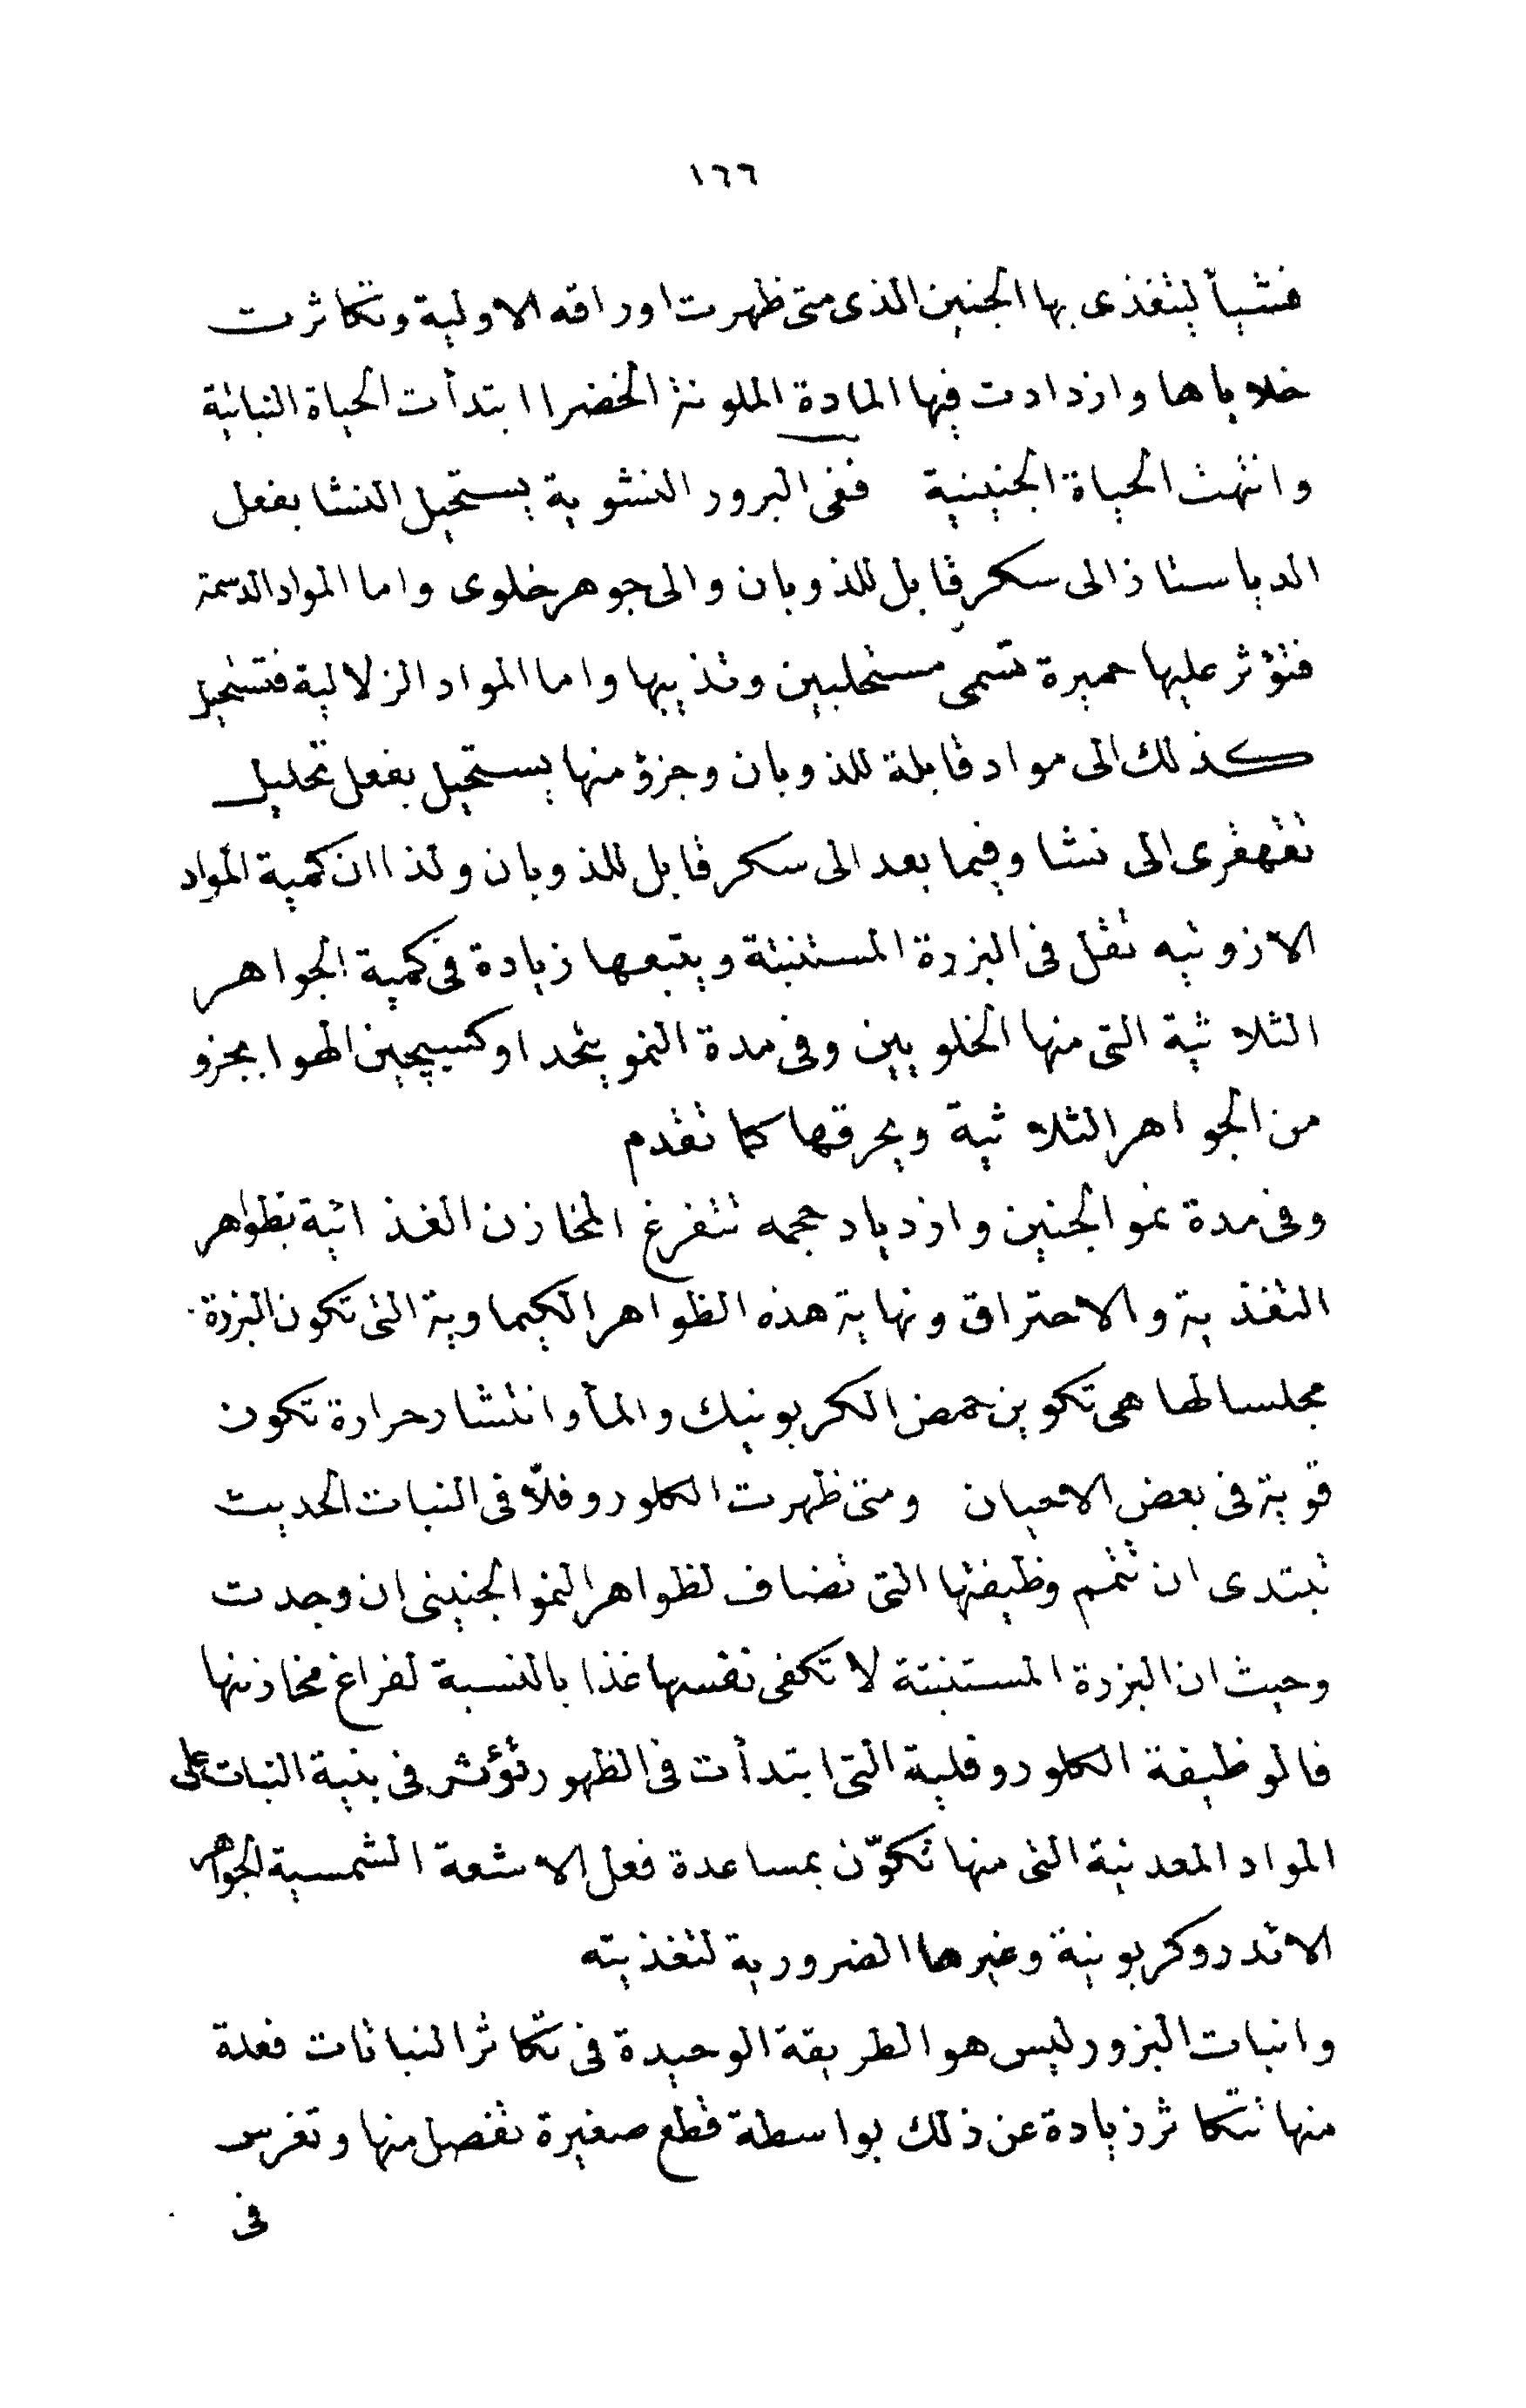 ١٦٦
فشيأ ليتغذى بها الجنين الذى متى ظهرت اوراقه الاولية وتكاثرت
خلاياها وازدادت فيها المادة الملونة الخضرا ابتدأت الحياة النباتية
وانتهت الحياة الجنينية ففى البزور النشوية يستحيل النشا بفعل
الدياستاز الى سكر قابل للذوبان والى جوهر خلوى واما المواد الدسمة
فتؤثر عليها خميرة تسمى مستحلبين وتذيبها واما المواد الزلالية فتستحيل
كذلك الى مواد قابلة للذوبان وجزؤ منها يستحيل بفعل تحليل
تقهقرى الى نشا وفيما بعد الى سكر قابل للذوبان ولذا ان كمية المواد
الازوتيه تقل فى البزرة المستنبتة ويتبعها زيادة فى كمية الجواهر
الثلاثية التى منها الخلويين وفى مدة النمو يتحد اوكسيچين الهوا بجزو
من الجواهر الثلاثية ويحرقها كما تقدم
وفى مدة نمو الجنين وازدياد حجمه تتفرغ المخازن الغذائية بظواهر
التغذية والاحتراق ونهاية هذه الظواهر الكيماوية التى تكون البزرة
مجلسا لها هى تكوين حمض الكربونيك والمأ وانتشار حرارة تكون
قوية فى بعض الاحيان ومتى ظهرت الكلوروفلّا فى النبات الحديث
تبتدى ان تتمم وظيفتها التى تضاف لظواهر النمو الجنينى ان وجدت
وحيث ان البزرة المستنبتة لا تكفى نفسها غذا بالنسبة لفراغ مخازنها
فالوظيفة الكلوروفلية التى ابتدأت فى الظهور تؤثر فى بنية النبات على
المواد المعدنية التى منها تكوّن بمساعدة فعل الاشعة الشمسية الجواهر
الاندروكربونية وغيرها الضرورية لتغذيته
وانبات البزور ليس هو الطريقة الوحيدة فى تكاثر النباتات فعلة
منها تتكاثر زيادة عن ذلك بواسطة قطع صغيرة تفصل منها وتغرس
فى